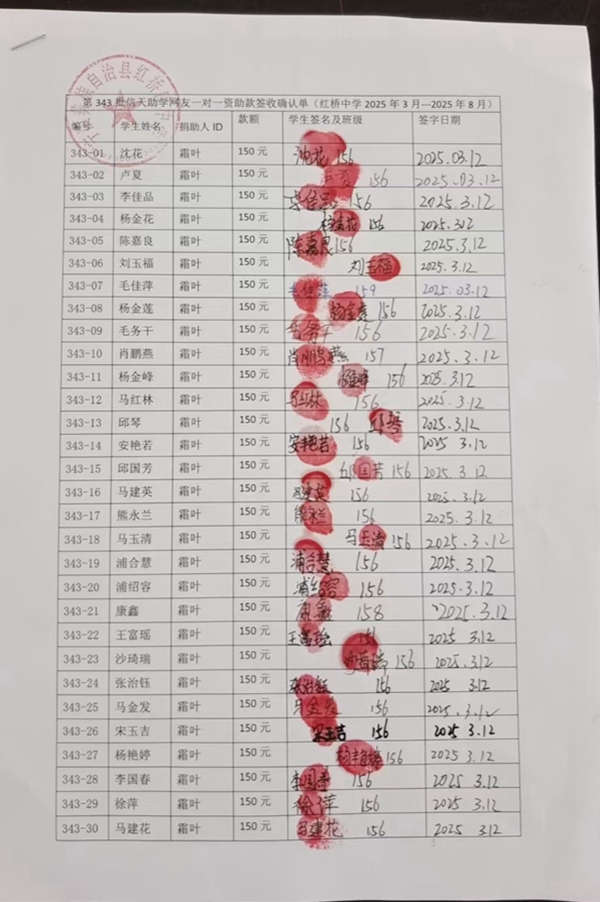 自治县红桥
第 343 批信天助学网友一对一资助款签收确认单（红桥中学 2025 年 3 月—2025 年 8 月）
编号 学生姓名 捐助人 ID 款额 学生签名及班级 签字日期
343-01 沈花 霜叶 150 元 沈花 156 2025.03.12
343-02 卢夏 霜叶 150 元 卢夏 156 2025.03.12
343-03 李佳品 霜叶 150 元 李佳品 156 2025.3.12
343-04 杨金花 霜叶 150 元 杨金花 156 2025.3.12
343-05 陈嘉良 霜叶 150 元 陈嘉良 156 2025.3.12
343-06 刘玉福 霜叶 150 元 刘玉福 2025.3.12
343-07 毛佳萍 霜叶 150 元 毛佳萍 159 2025.03.12
343-08 杨金莲 霜叶 150 元 杨金莲 156 2025.3.12
343-09 毛务干 霜叶 150 元 毛务干 156 2025.3.12
343-10 肖鹏燕 霜叶 150 元 肖鹏燕 157 2025.3.12
343-11 杨金峰 霜叶 150 元 杨金峰 156 2025.3.12
343-12 马红林 霜叶 150 元 马红林 156 2025.3.12
343-13 邱琴 霜叶 150 元 156 邱琴 2025.3.12
343-14 安艳若 霜叶 150 元 安艳若 156 2025 3.12
343-15 邱国芳 霜叶 150 元 邱国芳 156 2025.3.12
343-16 马建英 霜叶 150 元 马建英 156 2025.3.12
343-17 熊永兰 霜叶 150 元 熊永兰 156 2025.3.12
343-18 马玉清 霜叶 150 元 马玉清 156 2025.3.12
343-19 浦合慧 霜叶 150 元 浦合慧 156 2025.3.12
343-20 浦绍容 霜叶 150 元 浦绍容 156 2025.3.12
343-21 康鑫 霜叶 150 元 康鑫 158 2025.3.12
343-22 王富瑶 霜叶 150 元 王富瑶 2025 3.12
343-23 沙琦瑞 霜叶 150 元 沙琦瑞 156 2025.3.12
343-24 张治钰 霜叶 150 元 张治钰 156 2025 3.12
343-25 马金发 霜叶 150 元 马金发 156 2025.3.12
343-26 宋玉吉 霜叶 150 元 宋玉吉 156 2025 3.12
343-27 杨艳婷 霜叶 150 元 杨艳婷 156 2025 3.12
343-28 李国春 霜叶 150 元 李国春 156 2025 3.12
343-29 徐萍 霜叶 150 元 徐萍 156 2025 3.12
343-30 马建花 霜叶 150 元 马建花 156 2025 3.12